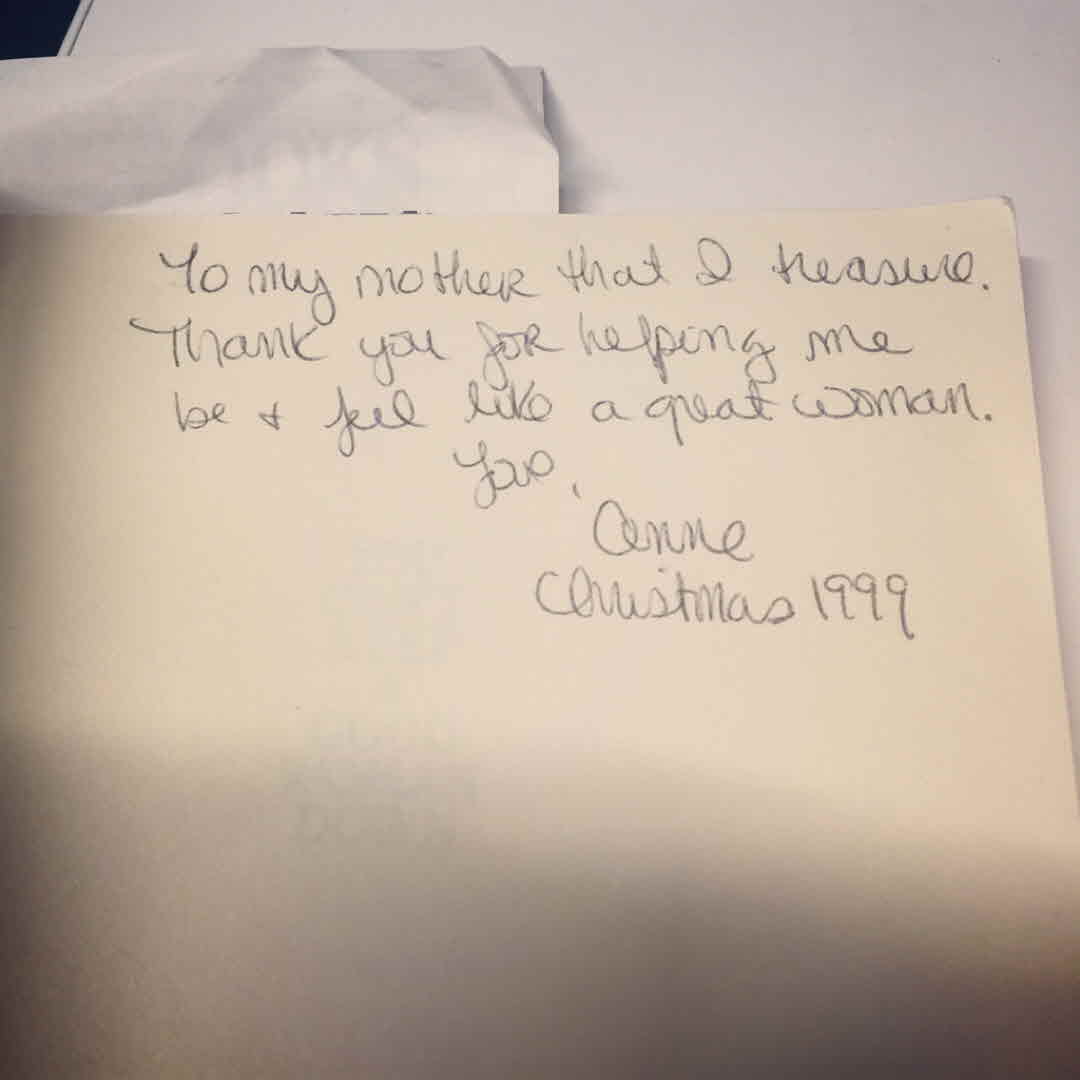 To my mother that I treasure.
Thank you for helping me
be + feel like a great woman.
Love,
Anne
Christmas 1999